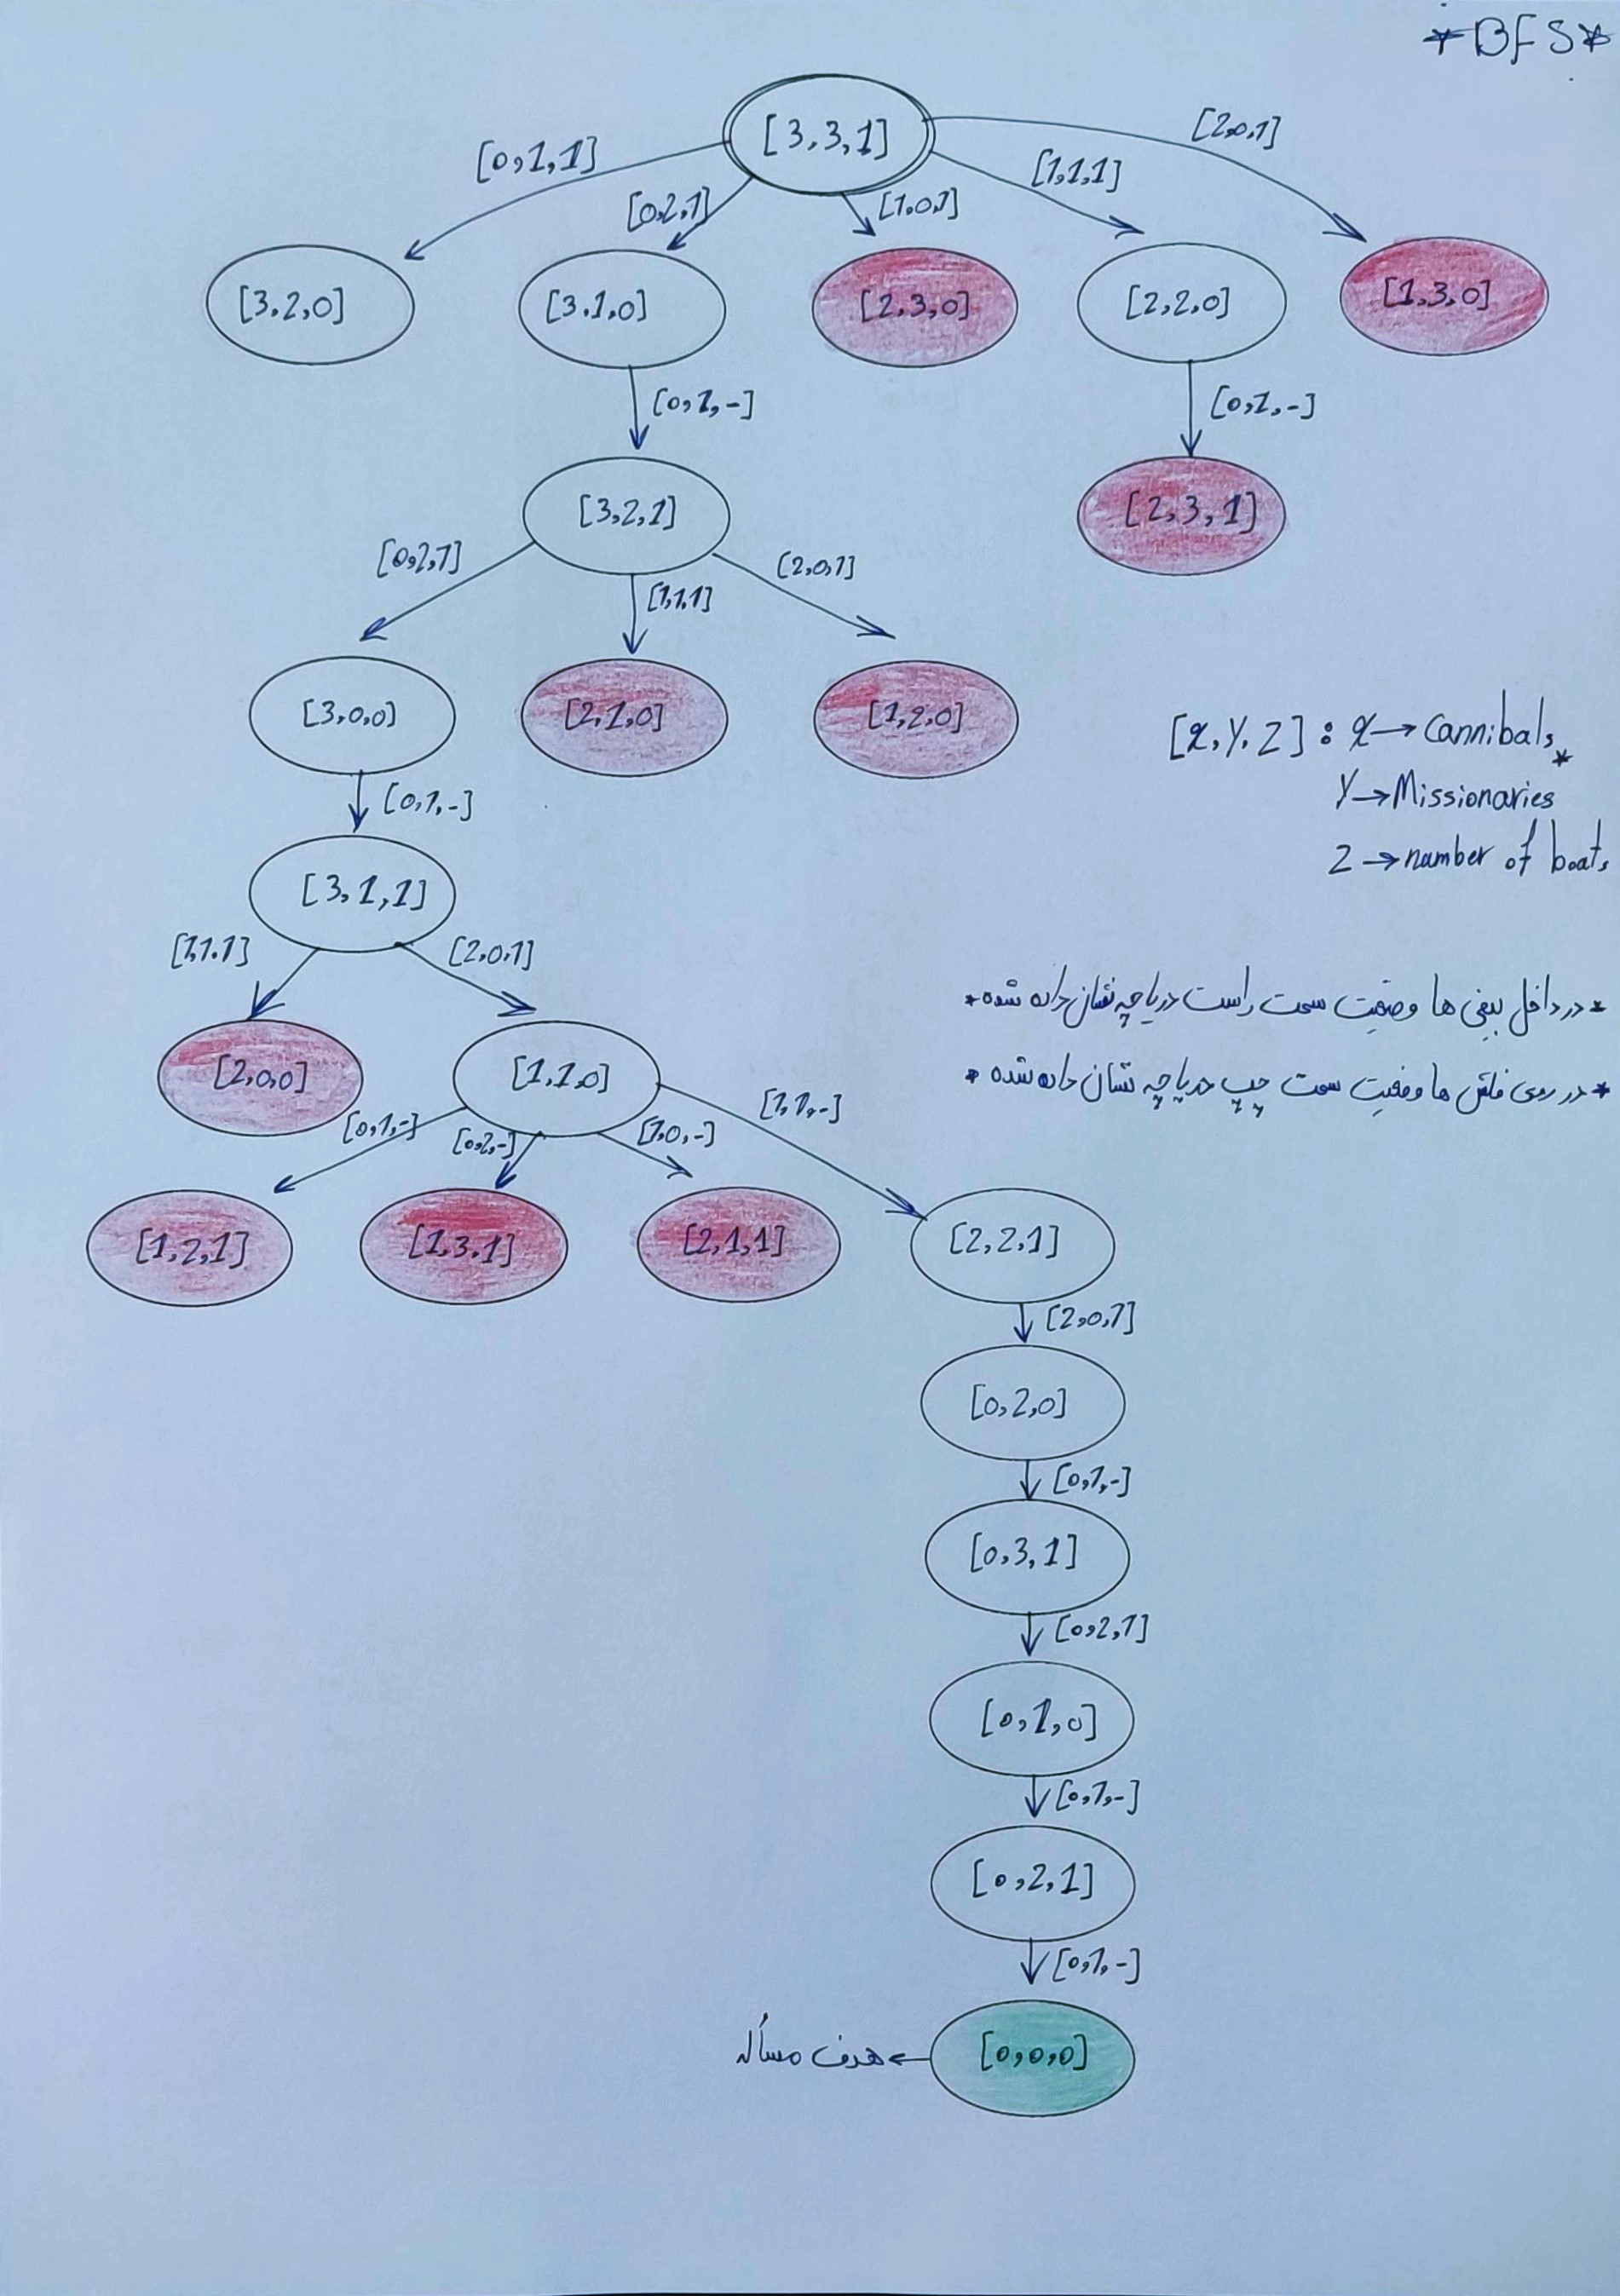 *BFS*
[3,3,1]
[0,1,1]
[0,2,1]
[1,0,1]
[1,1,1]
[2,0,1]
[3,2,0]
[3,1,0]
[2,3,0]
[2,2,0]
[1,3,0]
[0,1,-]
[0,1,-]
[3,2,1]
[2,3,1]
[0,2,1]
[1,1,1]
[2,0,1]
[3,0,0]
[2,1,0]
[1,2,0]
[x,y,z] : x→Cannibals
y→Missionaries
z→number of boats
[0,1,-]
[3,1,1]
[1,1,1]
[2,0,1]
*در داخل بیضی ها وضعیت سمت راست دریاچه نشان داده شده*
*در روی فلش ها وضعیت سمت چپ دریاچه نشان داده شده*
[2,0,0]
[1,1,0]
[0,1,-]
[0,2,-]
[1,0,-]
[1,1,-]
[1,2,1]
[1,3,1]
[2,1,1]
[2,2,1]
[2,0,1]
[0,2,0]
[0,1,-]
[0,3,1]
[0,2,1]
[0,1,0]
[0,1,-]
[0,2,1]
[0,1,-]
[0,0,0]
هدف مسأله